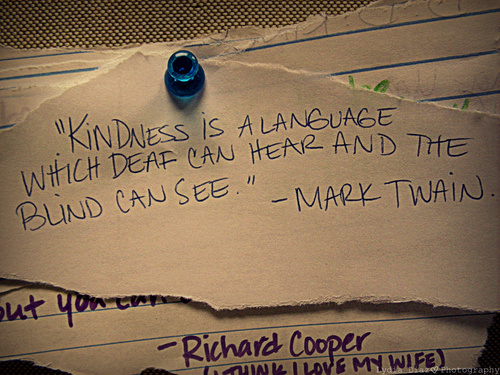 "KINDNESS IS A LANGUAGE
WHICH DEAF CAN HEAR AND THE
BLIND CAN SEE." - MARK TWAIN.
but you can't
- Richard Cooper
(I THINK I LOVE MY WIFE)
Photography